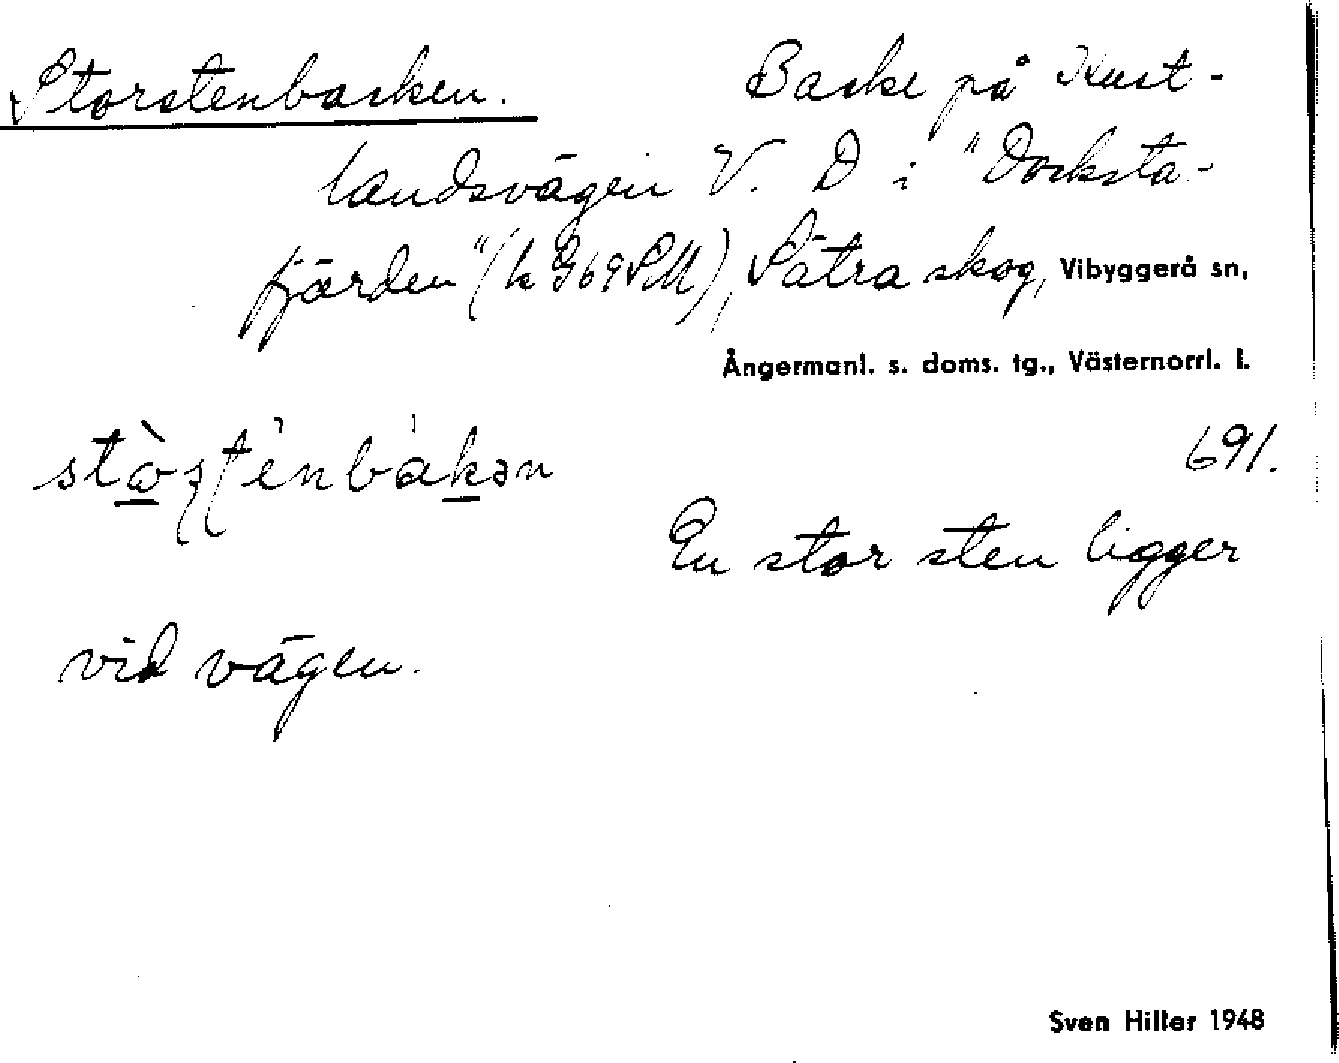 Storstenbacken. Backe på Kust-
landsvägen V. D i "Docksta-
fjärden" (k G69SM), Sätra skog, Vibyggerå sn,
Ångermanl. s. doms. tg., Västernorrl. l.
691.
En stor sten ligger
vid vägen.
Sven Hiller 1948